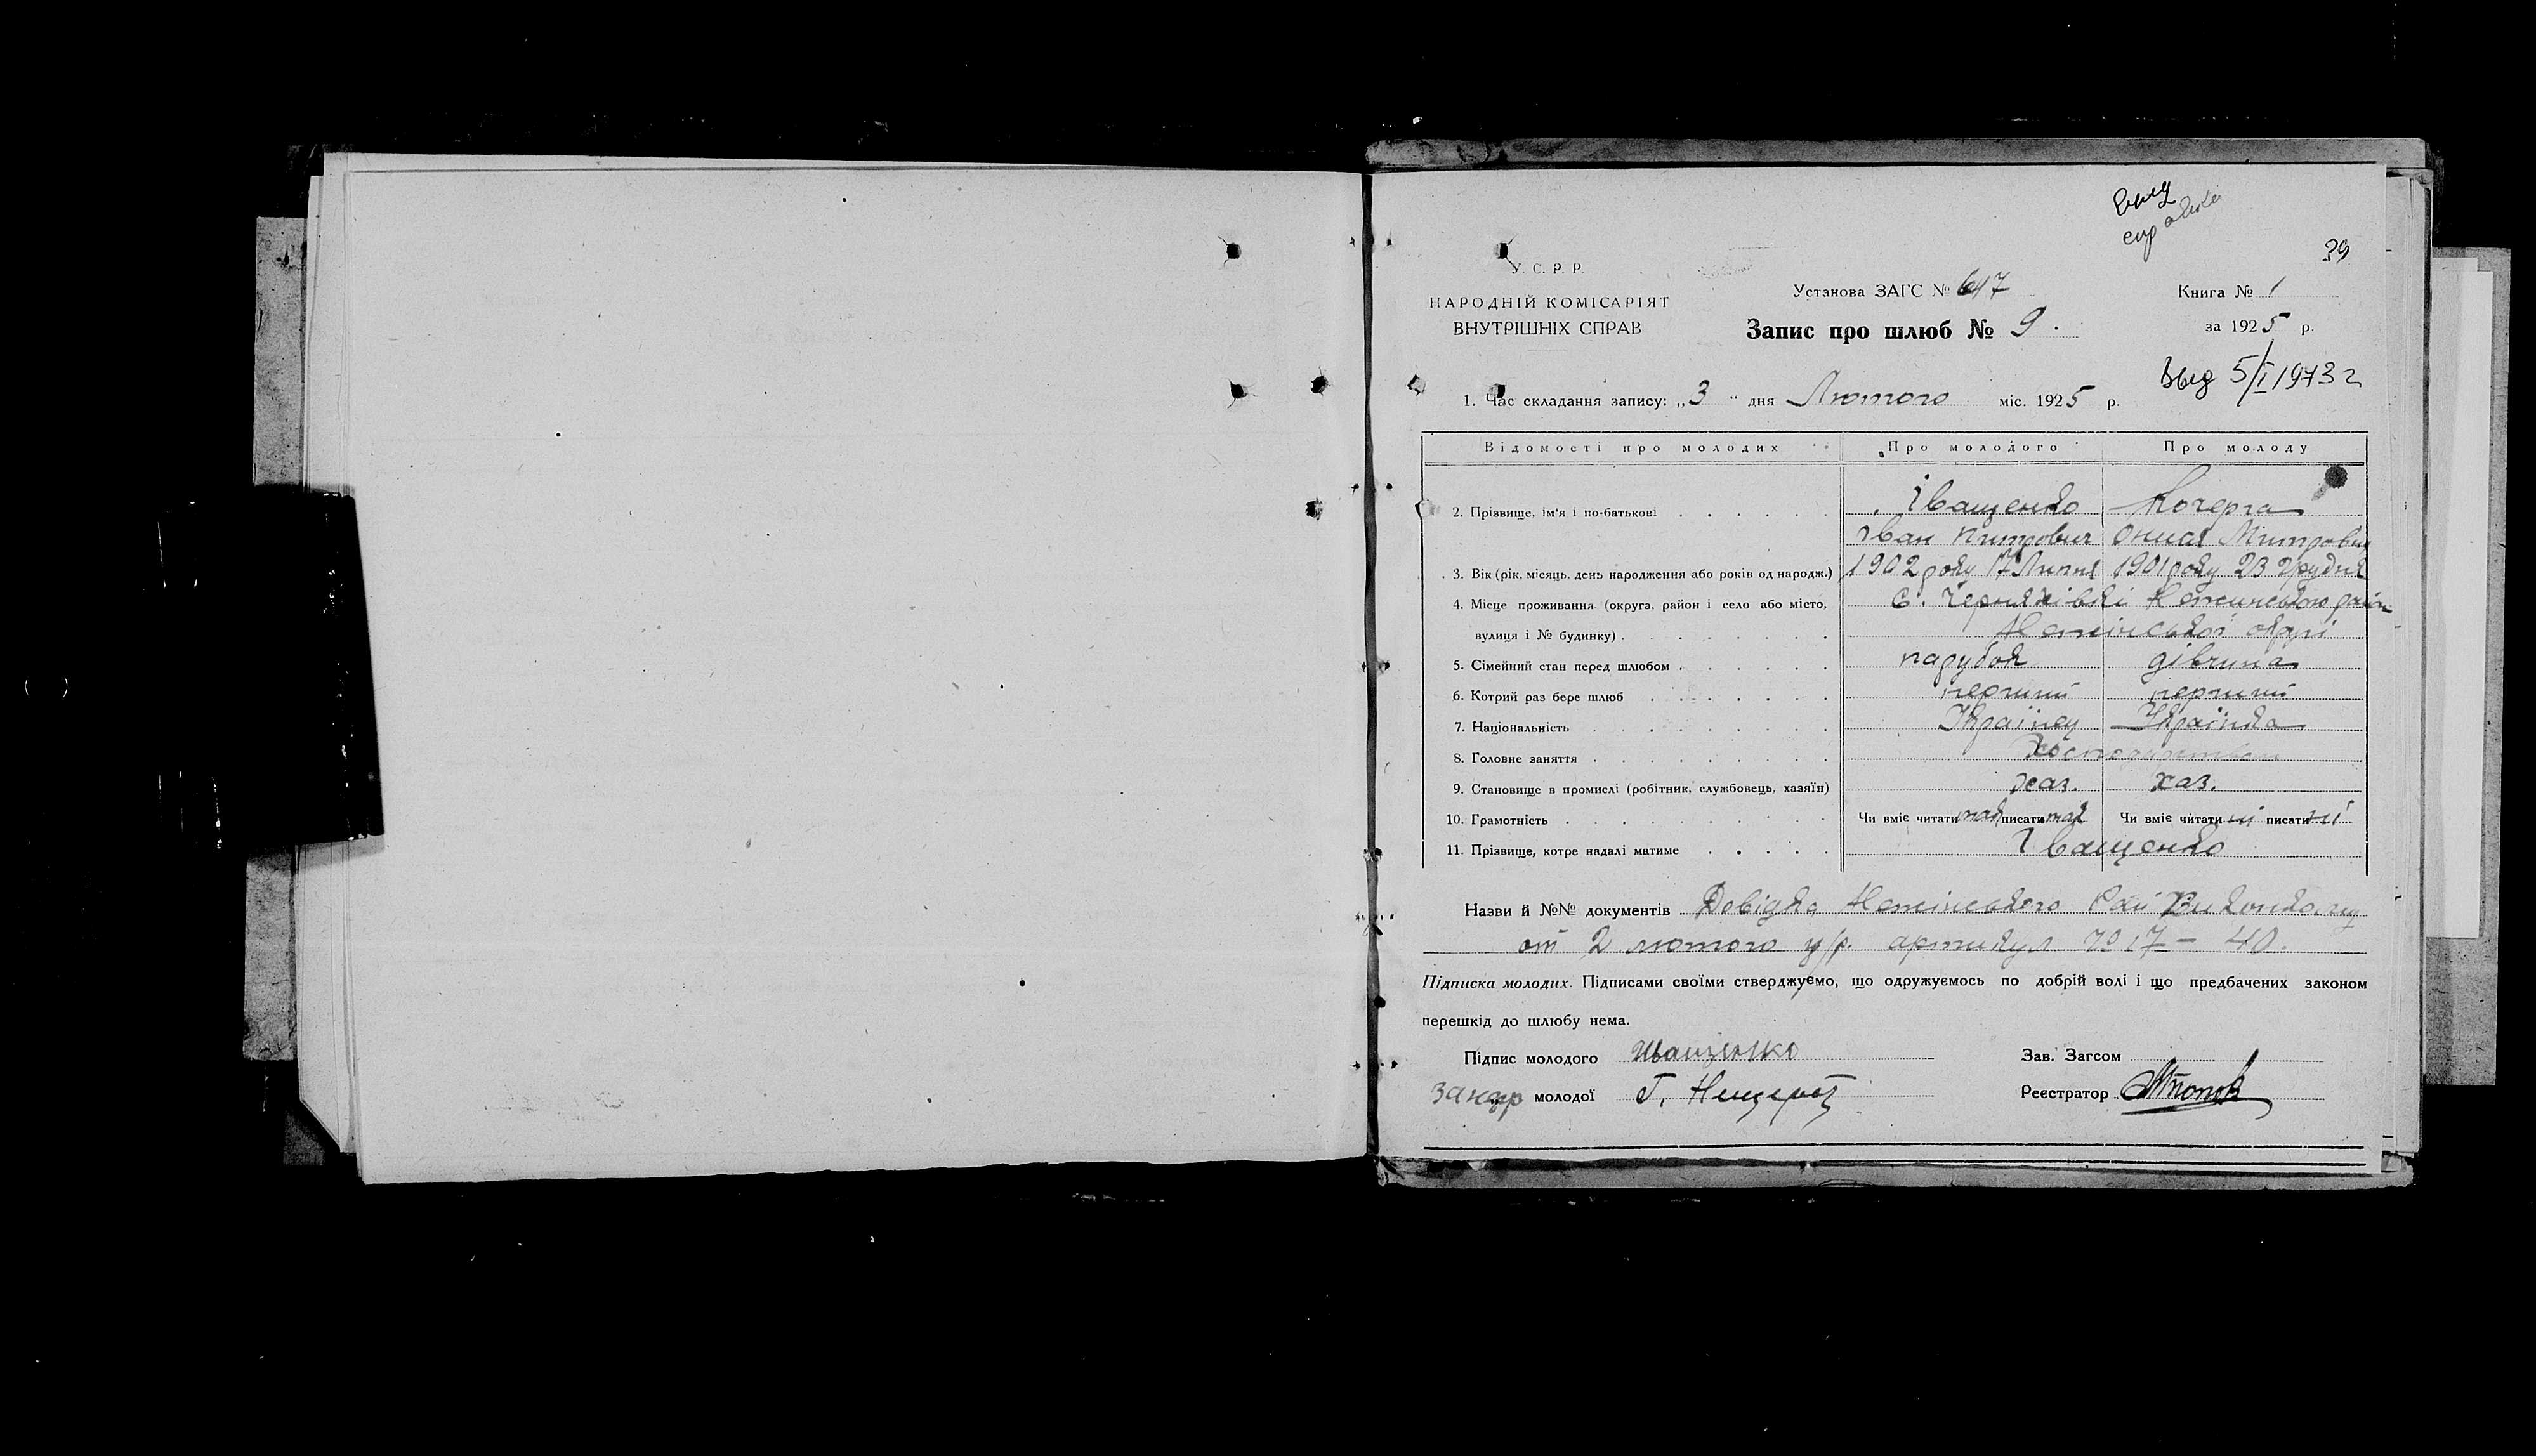 справка
39
У. С. Р. Р.
НАРОДНІЙ КОМІСАРІЯТ
ВНУТРІШНІХ СПРАВ
Установа ЗАГС № 617
Запис про шлюб № 9.
Книга № 1
за 1925 р.
Выд 5/I 1973 г
1. Час складання запису: „3" дня Лютого міс. 1925 р.
Відомості про молодих Про молодого Про молоду
2. Прізвище, ім'я і по-батькові Іващенко Кочерга
Іван Митрович Митровна
3. Вік (рік, місяць, день народження або років од народж.) 1902 року 17 Липня 1901 року 23 грудня
4. Місце проживання (округа, район і село або місто, с. Черняхівкі Ніжинського район
вулиця і № будинку) Ніжінської окрузі
5. Сімейний стан перед шлюбом парубок дівчина
6. Котрий раз бере шлюб перший перший
7. Національність Українец Українка
8. Головне заняття Хосподарством
9. Становище в промислі (робітник, службовець, хазяїн) хаз. хаз.
10. Грамотність Чи вміє читати так писати так Чи вміє читати ні писати ні
11. Прізвище, котре надалі матиме Іващенко
Назви й №№ документів Довідка Ніжінського Рай Виконкому
от 2 лютого ц/р. артикул № 17 — 40.
Підписка молодих. Підписами своїми стверджуємо, що одружуємось по добрій волі і що предбачених законом
перешкід до шлюбу нема.
Підпис молодого Иващенко Зав. Загсом
молодої Г. Реєстратор